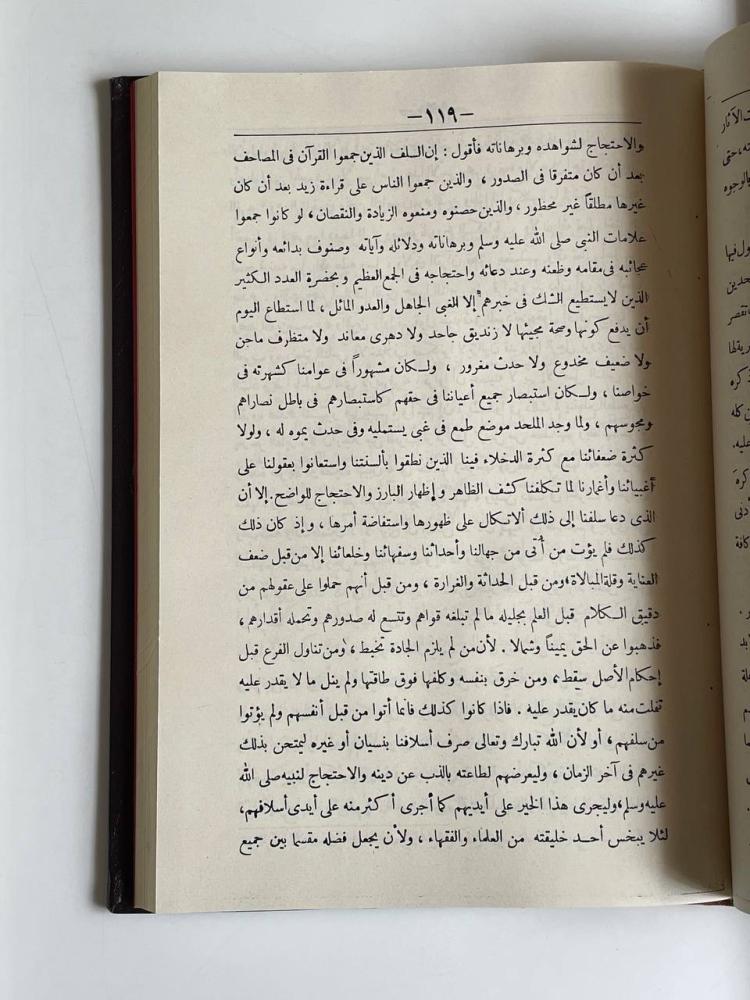 —١١٩—
والاحتجاج لشواهده وبرهاناته فأقول : إن السلف الذين جمعوا القرآن فى المصاحف
بعد أن كان متفرقا فى الصدور ، والذين جمعوا الناس على قراءة زيد بعد أن كان
غيرها مطلقاً غير محظور ، والذين حصنوه ومنعوه الزيادة والنقصان ، لو كانوا جمعوا
علامات النبي صلى الله عليه وسلم وبرهاناته ودلائله وآياته وصنوف بدائعه وأنواع
عجائبه فى مقامه وظعنه وعند دعائه واحتجاجه فى الجمع العظيم وبحضرة العدد الكثير
الذين لا يستطيع الشك فى خبرهم إلا الغبى الجاهل والعدو المائل ، لما استطاع اليوم
أن يدفع كونها وصحة مجيئها لا زنديق جاحد ولا دهرى معاند ولا متظرف ماجن
ولا ضعيف مخدوع ولا حدث مغرور ، ولكان مشهوراً فى عوامنا كشهرته فى
خواصنا ، ولكان استبصار جميع أعياننا فى حقهم كاستبصارهم فى باطل نصاراهم
ومجوسهم ، ولما وجد الملحد موضع طمع فى غبى يستمليه وفى حدث يموه له ، ولولا
كثرة ضعفائنا مع كثرة الدخلاء فينا الذين نطقوا بألسنتنا واستعانوا بعقولنا على
أغبيائنا وأغمارنا لما تكلفنا كشف الظاهر وإظهار البارز والاحتجاج للواضح. إلا أن
الذى دعا سلفنا إلى ذلك ألاتكال على ظهورها واستفاضة أمرها ، وإذ كان ذلك
كذلك فلم يؤت من أُتى من جهالنا وأحداثنا وسفهائنا وخلعائنا إلا من قبل ضعف
العناية وقلة المبالاة ، ومن قبل الحداثة والغرارة ، ومن قبل أنهم حملوا على عقولهم من
دقيق الكلام قبل العلم بجليله ما لم تبلغه قواهم وتتسع له صدورهم وتحمله أقدارهم ،
فذهبوا عن الحق يميناً وشمالا . لأن من لم يلزم الجادة تخبط ، ومن تناول الفرع قبل
إحكام الأصل سقط ، ومن خرق بنفسه وكلفها فوق طاقتها ولم ينل ما لا يقدر عليه
تفلت منه ما كان يقدر عليه . فاذا كانوا كذلك فانما أتوا من قبل أنفسهم ولم يؤتوا
من سلفهم ، أو لأن الله تبارك وتعالى صرف أسلافنا بنسيان أو غيره ليمتحن بذلك
غيرهم فى آخر الزمان ، وليعرضهم لطاعته بالذب عن دينه والاحتجاج لنبيه صلى الله
عليه وسلم ، وليجرى هذا الخير على أيديهم كما أجرى أكثر منه على أيدى أسلافهم ،
لئلا يبخس أحد خليقته من العلماء والفقهاء ، ولأن يجعل فضله مقسما بين جميع